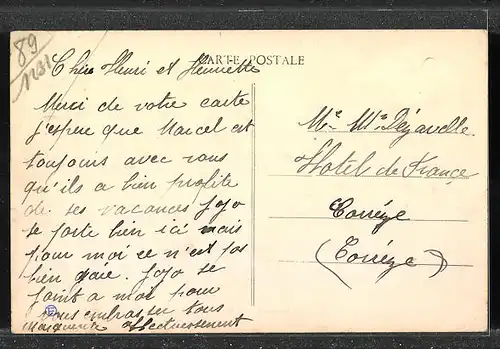 89
1131
CARTE POSTALE
Chers Henri et Henriette
Merci de votre carte
j'espere que Marcel est
toujours avec vous
qu'ils a bien profite
de ses vacances Jojo
se porte bien ici mais
pour moi ce n'est pas
bien gaie. Jojo se
joint a moi pour
vous embrasser tous
Affectueusement
Marguerite
Mr Me Dézavelle
Hotel de France
Corrèze
(Corrèze)